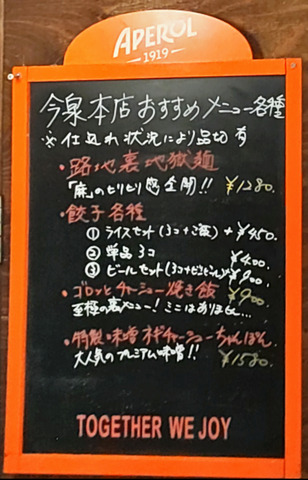 APEROL
1919
今泉本店おすすめメニュー各種
※仕込れ状況により品切有
・路地裏地獄麺
「麻」のヒリヒリ感全開!! ¥1280.
・餃子各種
① ライスセット(3コ+ご飯) +¥450.
② 単品3コ ¥400.
③ ビールセット ¥900.
・ゴロッとチャーシュー焼き飯 ¥900
至極の裏メニュー! ここはありません...
・特製味噌ネギチャーシューちゃんぽん
大人気のプレミアム味噌!! ¥1580.
TOGETHER WE JOY